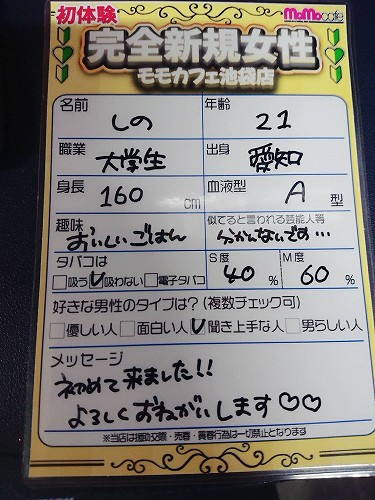 初体験 MoMoCafe
完全新規女性
モモカフェ池袋店
名前 しの 年齢 21
職業 大学生 出身 愛知
身長 160 cm 血液型 A 型
趣味 おいしいごはん 似てると言われる芸能人等 分かんないです…
タバコは □吸う ☑吸わない □電子タバコ S度 40 % M度 60 %
好きな男性のタイプは?(複数チェック可)
□優しい人 □面白い人 ☑聞き上手な人 □男らしい人
メッセージ
初めて来ました!!
よろしくおねがいします♡♡
※当店は援助交際・売春・買春行為は一切禁止となります